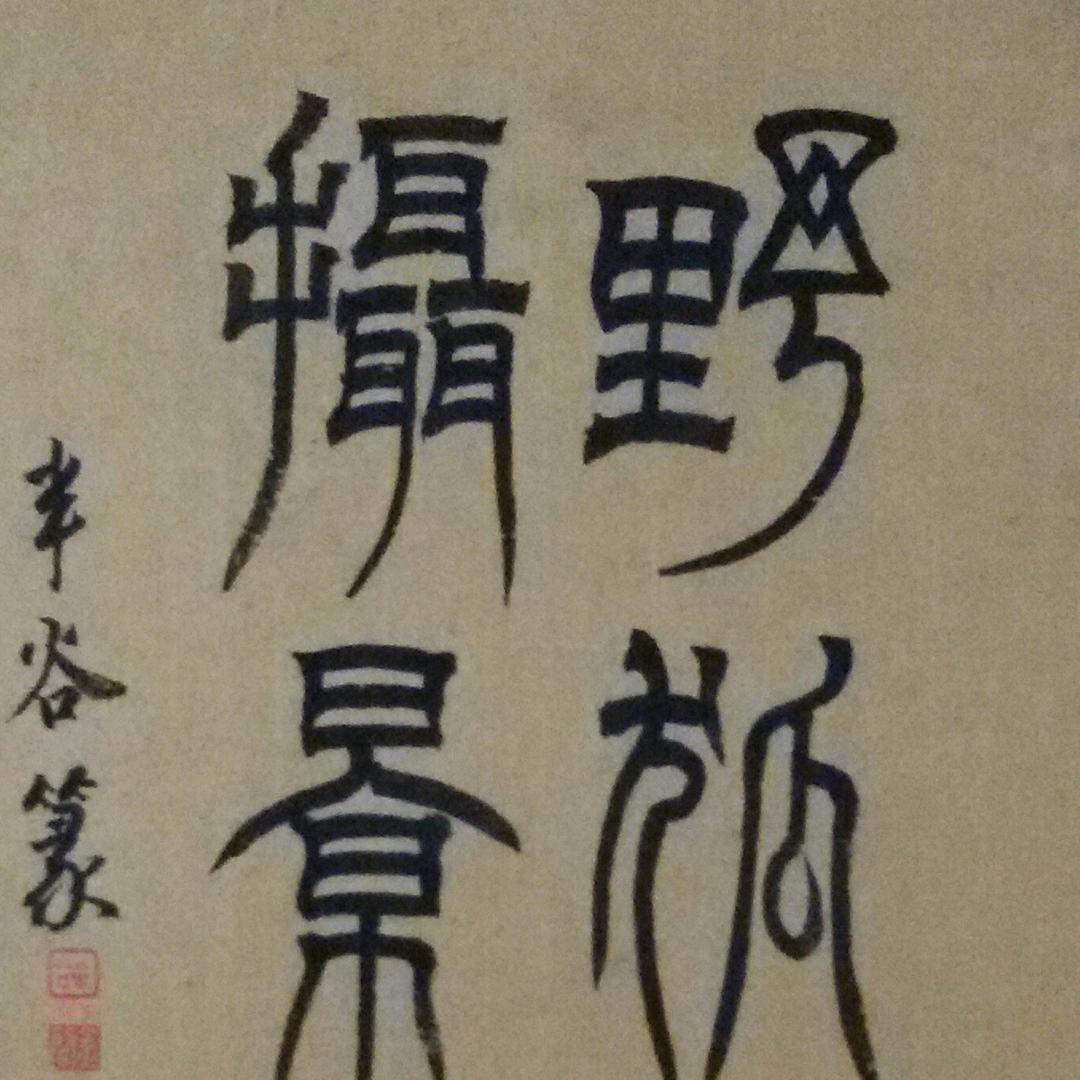 野狐
攝景
半谷篆